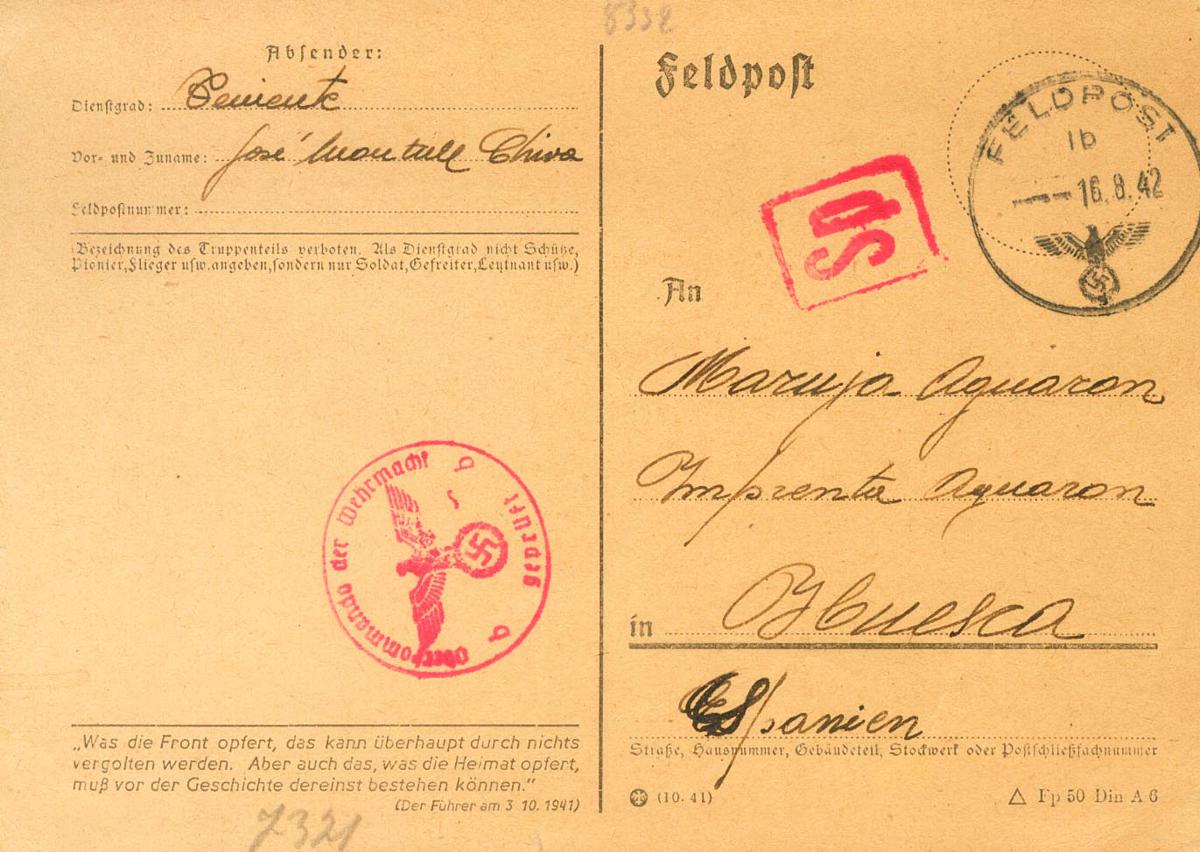 8332
Absender:
Dienstgrad: Teniente
Vor- und Zuname: José Montull Chiva
Feldpostnummer:
(Bezeichnung des Truppenteils verboten. Als Dienstgrad nicht Schütze,
Pionier, Flieger usw. angeben, sondern nur Soldat, Gefreiter, Leutnant usw.)
Oberkommando der Wehrmacht
geprüft
b
b
„Was die Front opfert, das kann überhaupt durch nichts
vergolten werden. Aber auch das, was die Heimat opfert,
muß vor der Geschichte dereinst bestehen können.“
(Der Führer am 3 10. 1941)
7321
Feldpost
FELDPOST
1b
16.8.42
An
Maruja Aguaron
Imprenta Aguaron
in Huesca
Espanien
Straße, Hausnummer, Gebäudeteil, Stockwerk oder Postschließfachnummer
(10. 41)
Fp 50 Din A 6